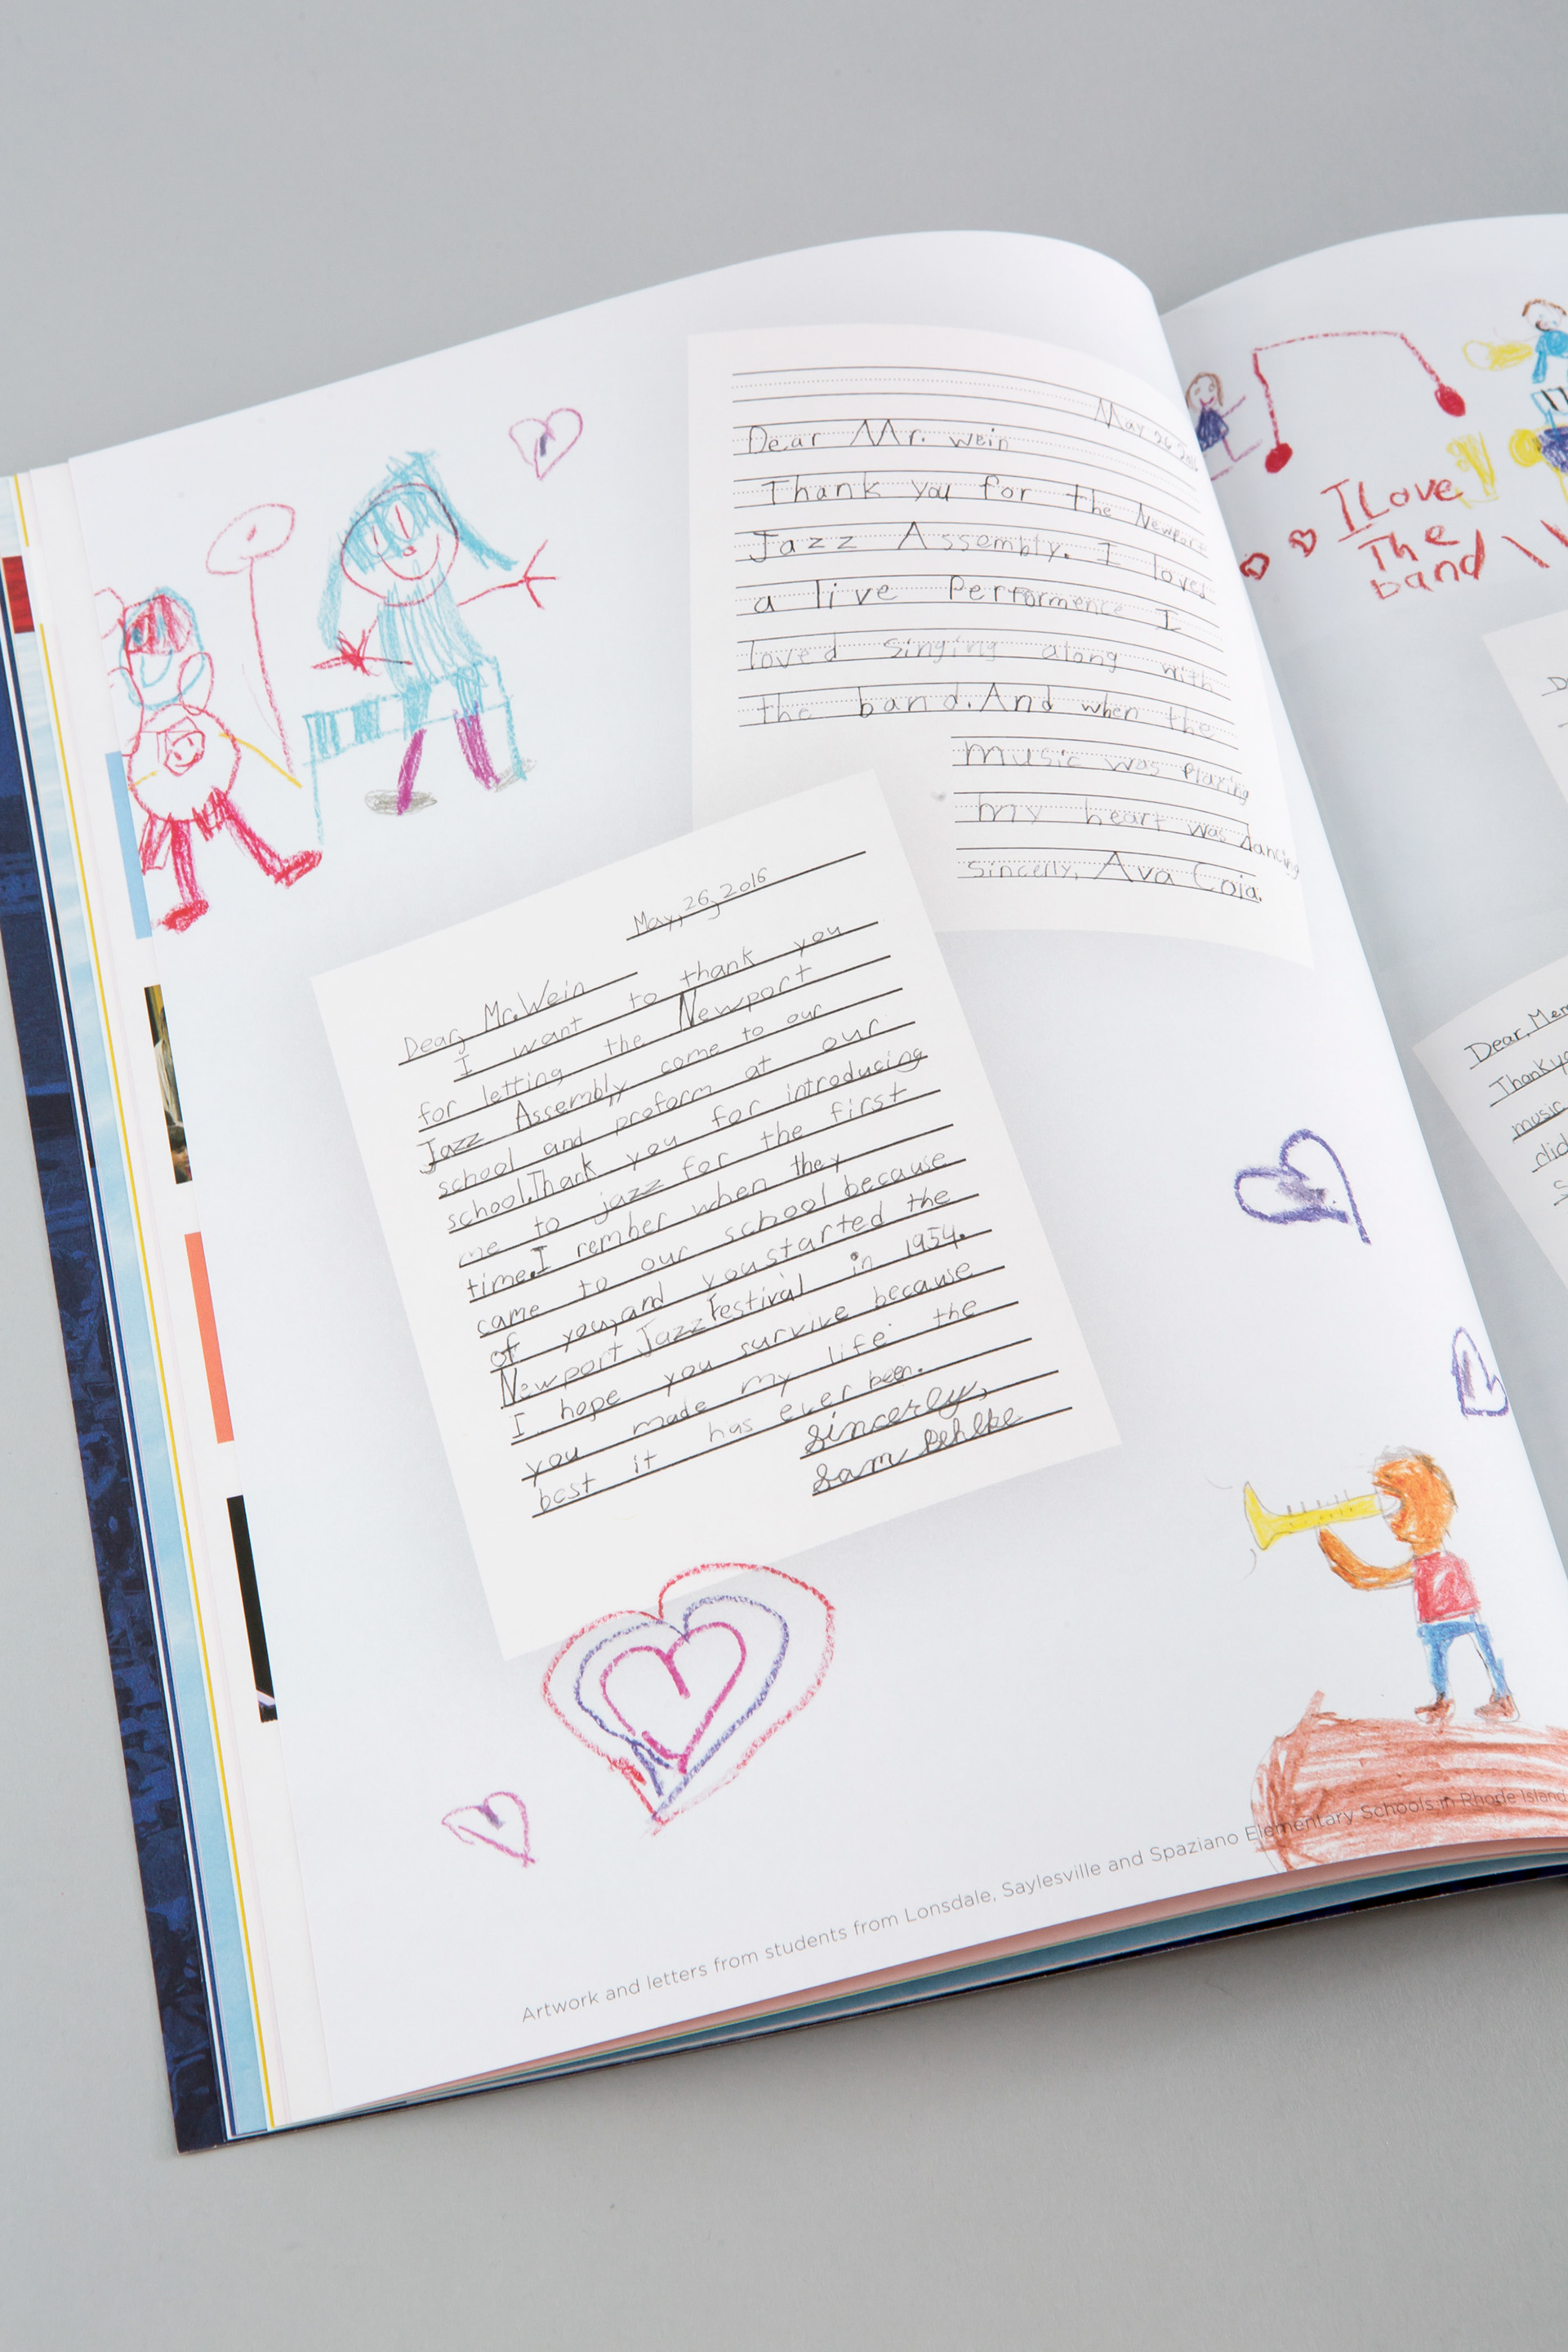 May 26 2016
Dear Mr. Wein
Thank you for the Newport
Jazz Assembly. I loved
a live Performence I
loved singing along with
the band. And when the
music was playing
my heart was dancing
sincerly, Ava Coia.
May, 26, 2016
Dear, Mr. Wein
I want to thank you
for letting the Newport
Jazz Assembly come to our
school and preform at our
school. Thank you for introducing
me to jazz for the first
time. I rember when they
came to our school because
of you, and you started the
Newport Jazz Festival in 1954.
I hope you survive because
you made my life the
best it has ever been.
sincerly,
Sam
I Love
The
band
Dear, Mem
Thank yo
music
did
Artwork and letters from students from Lonsdale, Saylesville and Spaziano Elementary Schools in Rhode Island